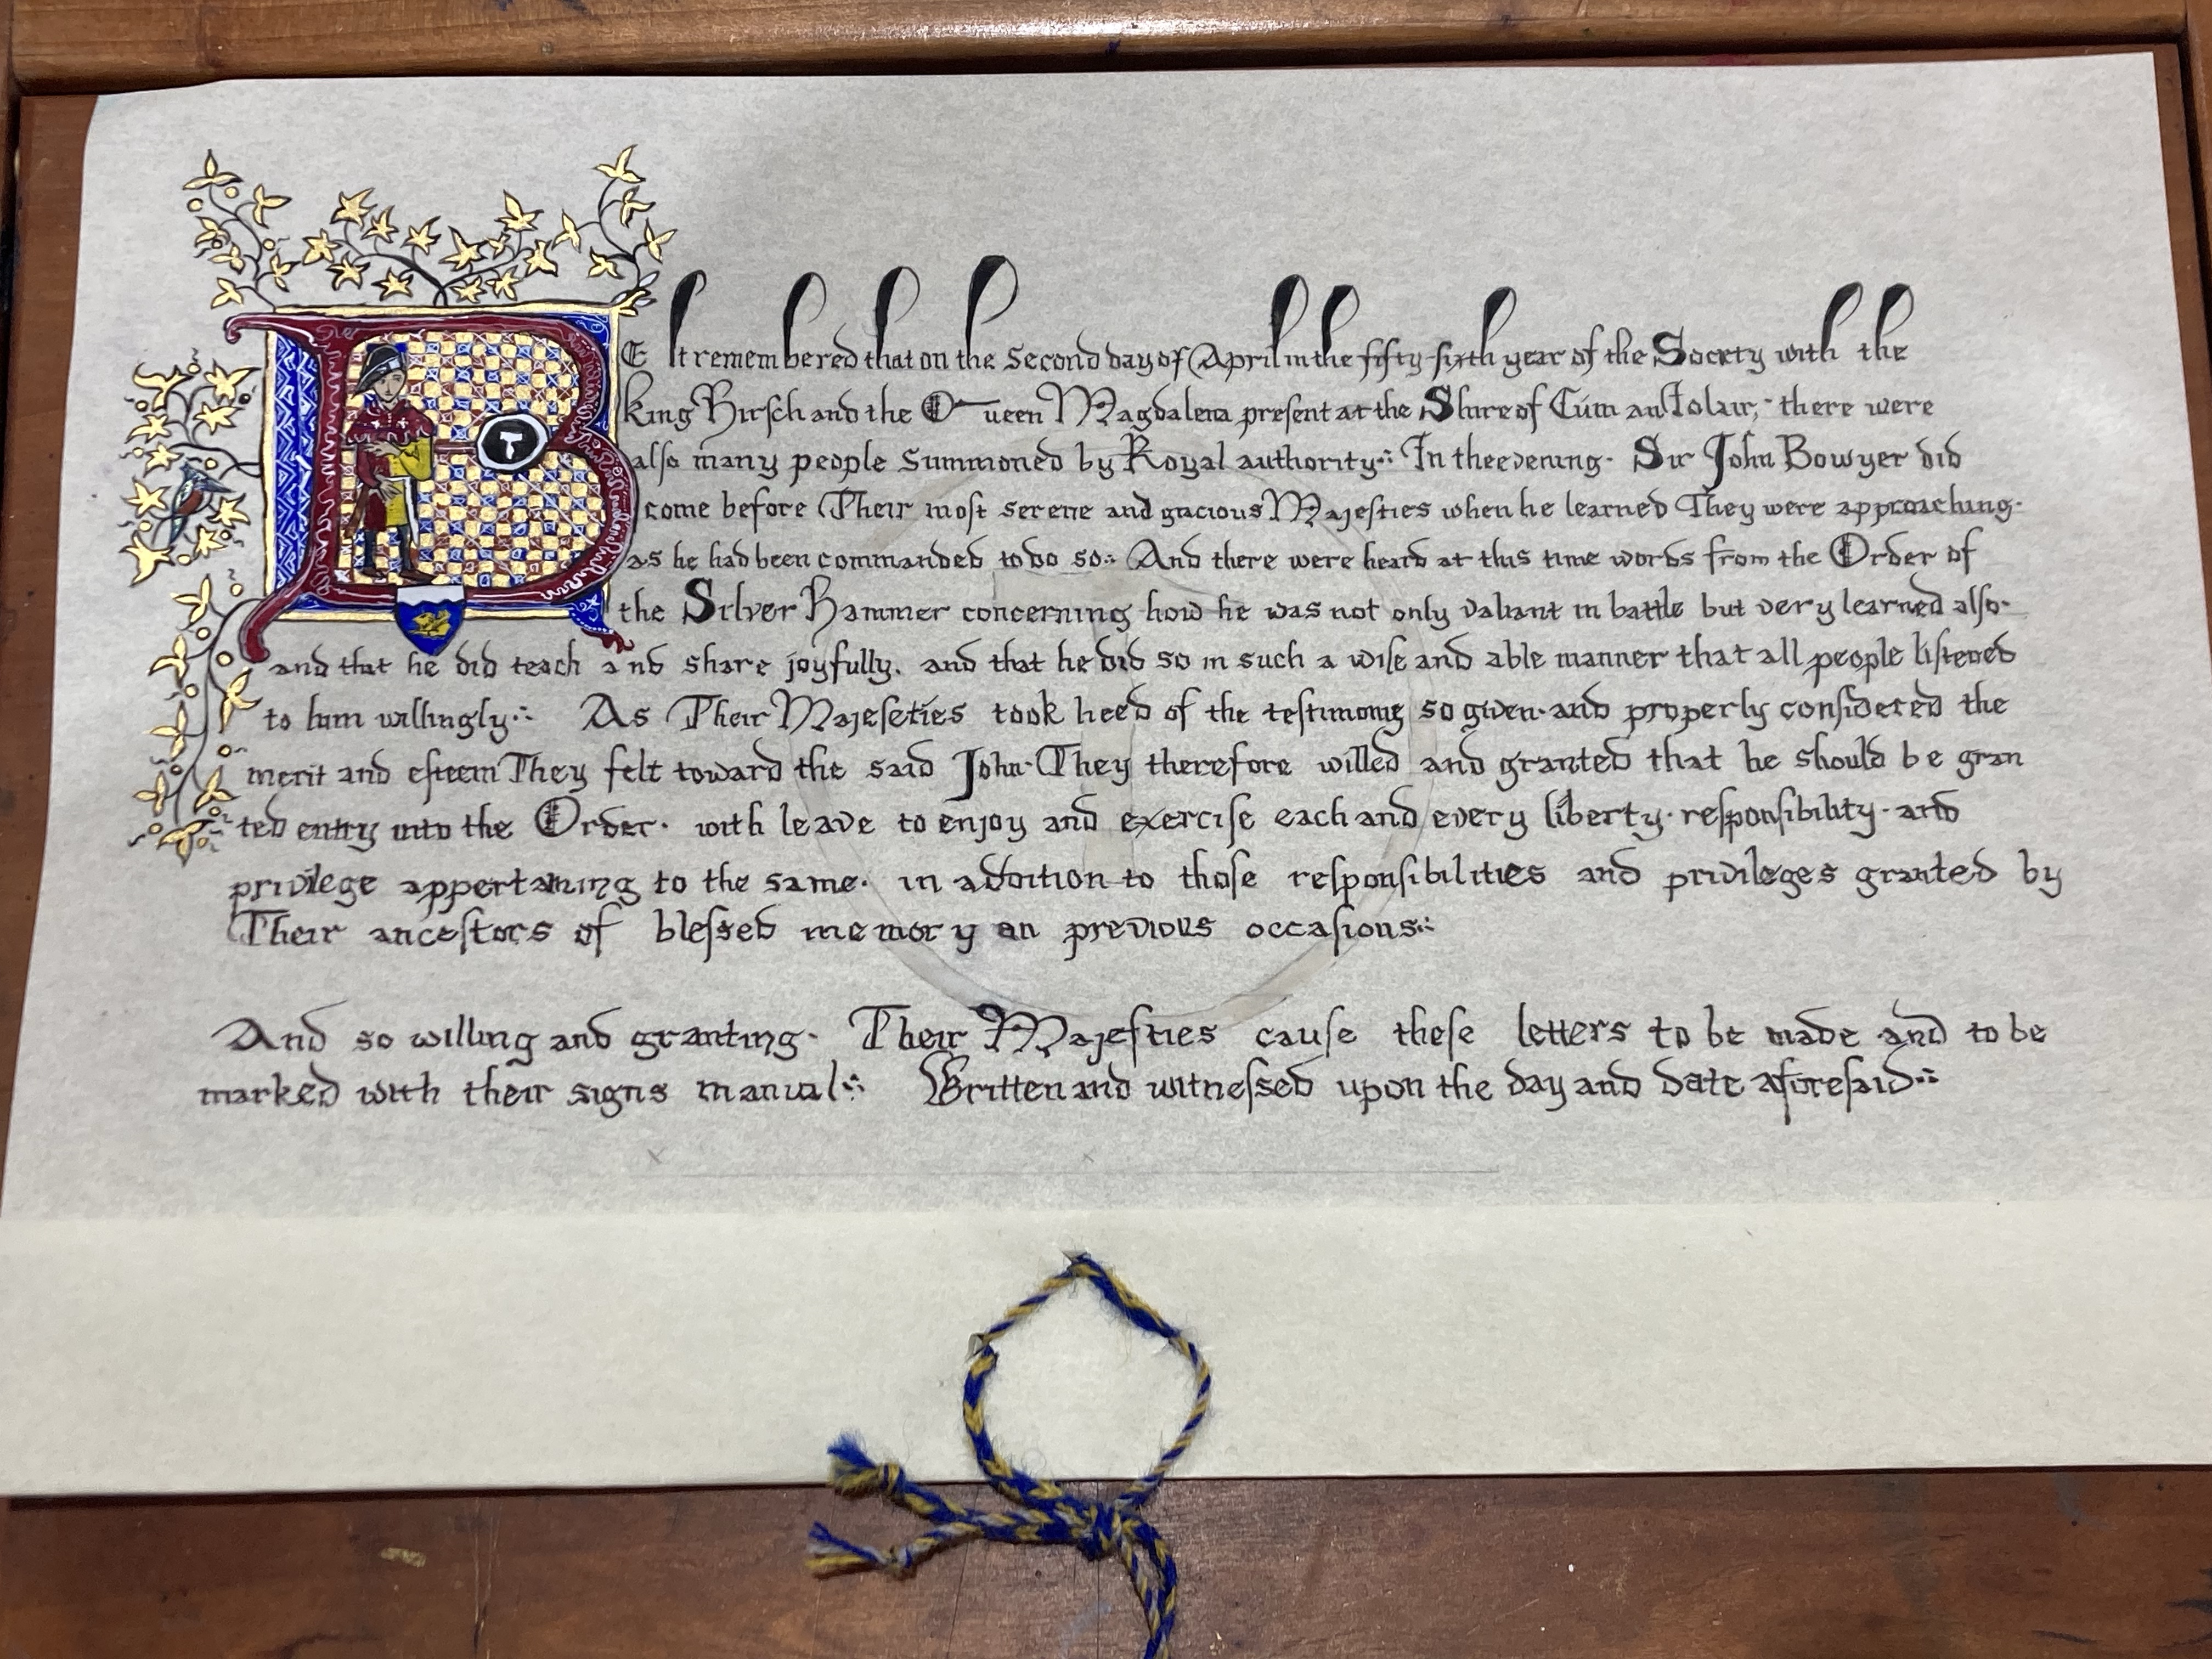 BE It remembered that on the Second day of April in the fifty-sixth year of the Society with the
King Hirsch and the Queen Magdalena present at the Shire of Cúm an Iolair, there were
also many people summoned by Royal authority∴ In the evening· Sir John Bowyer did
come before Their most serene and gracious Majesties when he learned They were approaching·
as he had been commanded to do so∴ And there were heard at this time words from the Order of
the Silver Hammer concerning how he was not only valiant in battle but very learned also·
and that he did teach and share joyfully. and that he did so in such a wise and able manner that all people listened
to him willingly∴ As Their Majeseties took heed of the testimony so given· and properly considered the
merit and esteem They felt toward the said John· They therefore willed and granted that he should be gran
ted entry into the Order· with leave to enjoy and exercise each and every liberty· responsibility· and
privilege appertaining to the same· in addition to those responsibilities and privileges granted by
Their ancestors of blessed memory on previous occasions∴
And so willing and granting· Their Majesties cause these letters to be made and to be
marked with their signs manual∴ Written and witnessed upon the day and date aforesaid∴